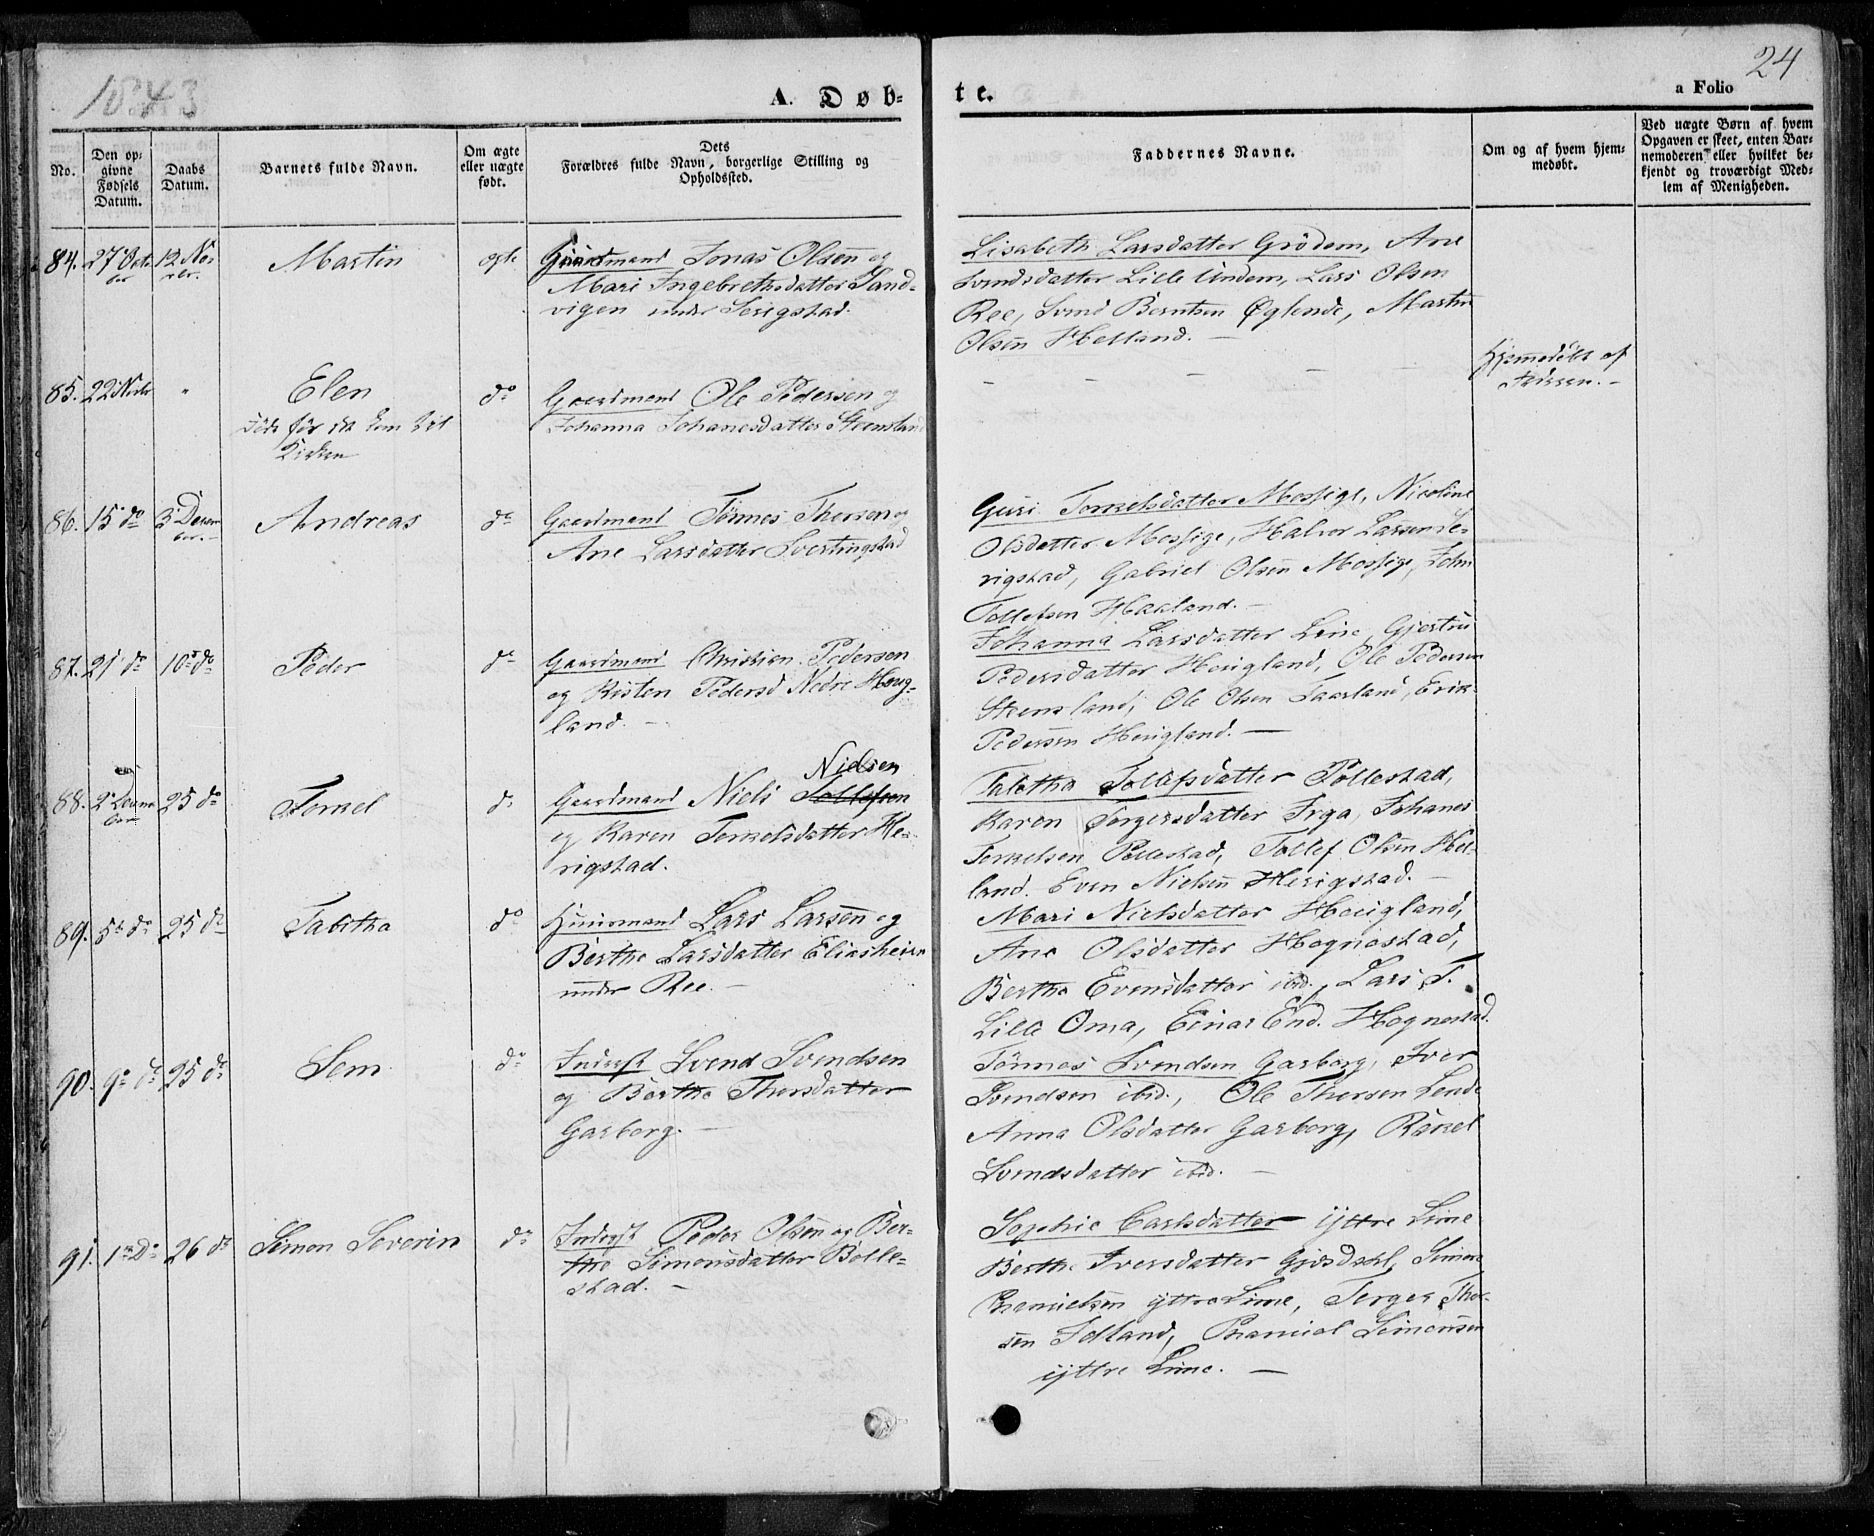 1843
24
A. Døb-
te.
a Folio
No.
Den op-
givne
Fødsels
Datum.
Daabs
Datum.
Barnets fulde Navn.
Om ægte
eller uægte
født.
Dets
Forældres fulde Navn, borgerlige Stilling og
Opholdssted.
Faddernes Navne.
Om og af hvem hjem-
medøbt.
Ved uægte Børn af hvem
Opgaven er skeet, enten Bar-
nemoderen eller hvilket be-
kjendt og troværdigt Med-
lem af Menigheden.
84. 27 Octo 12 No- Martin ægte Gaardmand Jonas Olsen og
ber
Mari Ingebretsdatter Sand-
vigen under Serigstad.
Lisabeth Larsdatter Grødem, Ane
Svendsdatter Lille Undem, Lars Olsen
Ree, Svend Berntsen Øglende, Martin
Olsen Helland. —
85. 22 " Elen do Gaardmand Ole Pedersen og
Døde før det kom til
Kirken
Johanna Johanesdatter Steensland
— — — — —
Hjemmedøbt af
86. 15 do 3 Decem Andreas do Gaardmand Tönnes Thorsen og
ber.
Ane Larsdatter Svertingstad
Guri Torkelsdatter Mossige, Nicoline
Olsdatter Mossige, Halvor Larsen Se-
rigstad, Gabriel Olsen Mossige, John
Tollefsen Haaland. —
87. 21 do 10 do Peder do Gaardmand Christian Pedersen
og Kisten Pedersd Nedre Houg-
land. —
Johanna Larsdatter Line, Gjertru
Pedersdatter Hougland, Ole Pedersen
Steensland, Ole Olsen Taarland, Erik
Pedersen Hougland. —
88. 2 Decem 25 do Torkel do Gaardmand Niels Tollefsen
ber
Nielsen
og Karen Torkelsdatter He-
rigstad.
Tabetha Tollefsdatter Pollestad,
Karen Torgersdatter Frga, Johanes
Torkelsen Pollestad, Tollef Olsen Hel-
land. Even Nielsen Herigstad. —
89. 5 do 25 do Tabitha do Huusmand Lars Larsen og
Berthe Larsdatter Eliasheien
under Ree. —
Mari Nielsdatter Hougland,
Ane Olsdatter Hognestad,
Berthe Evensdatter ibid., Lars T.
Lille Oma, Einar End. Hognestad.
90. 9 do 25 do Sem do Inderst Svend Svendsen
og Berthe Thorsdatter
Garborg. —
Tönnes Svendsen Garborg, Iver
Svendsen ibid., Ole Thorsen Lende
Anna Olsdatter Garborg, Rakel
Svendsdatter ibid. —
91. 1 Do 26 do Simon Severin do Inderst Peder Olsen og Ber-
the Simonsdatter Bolle-
stad. —
Sophie Carlsdatter Yttre Line
Berthe Iversdatter Gjesdahl, Simon
yttre Line, Torger Thor-
sen Idland, Simonsen
yttre Line. —